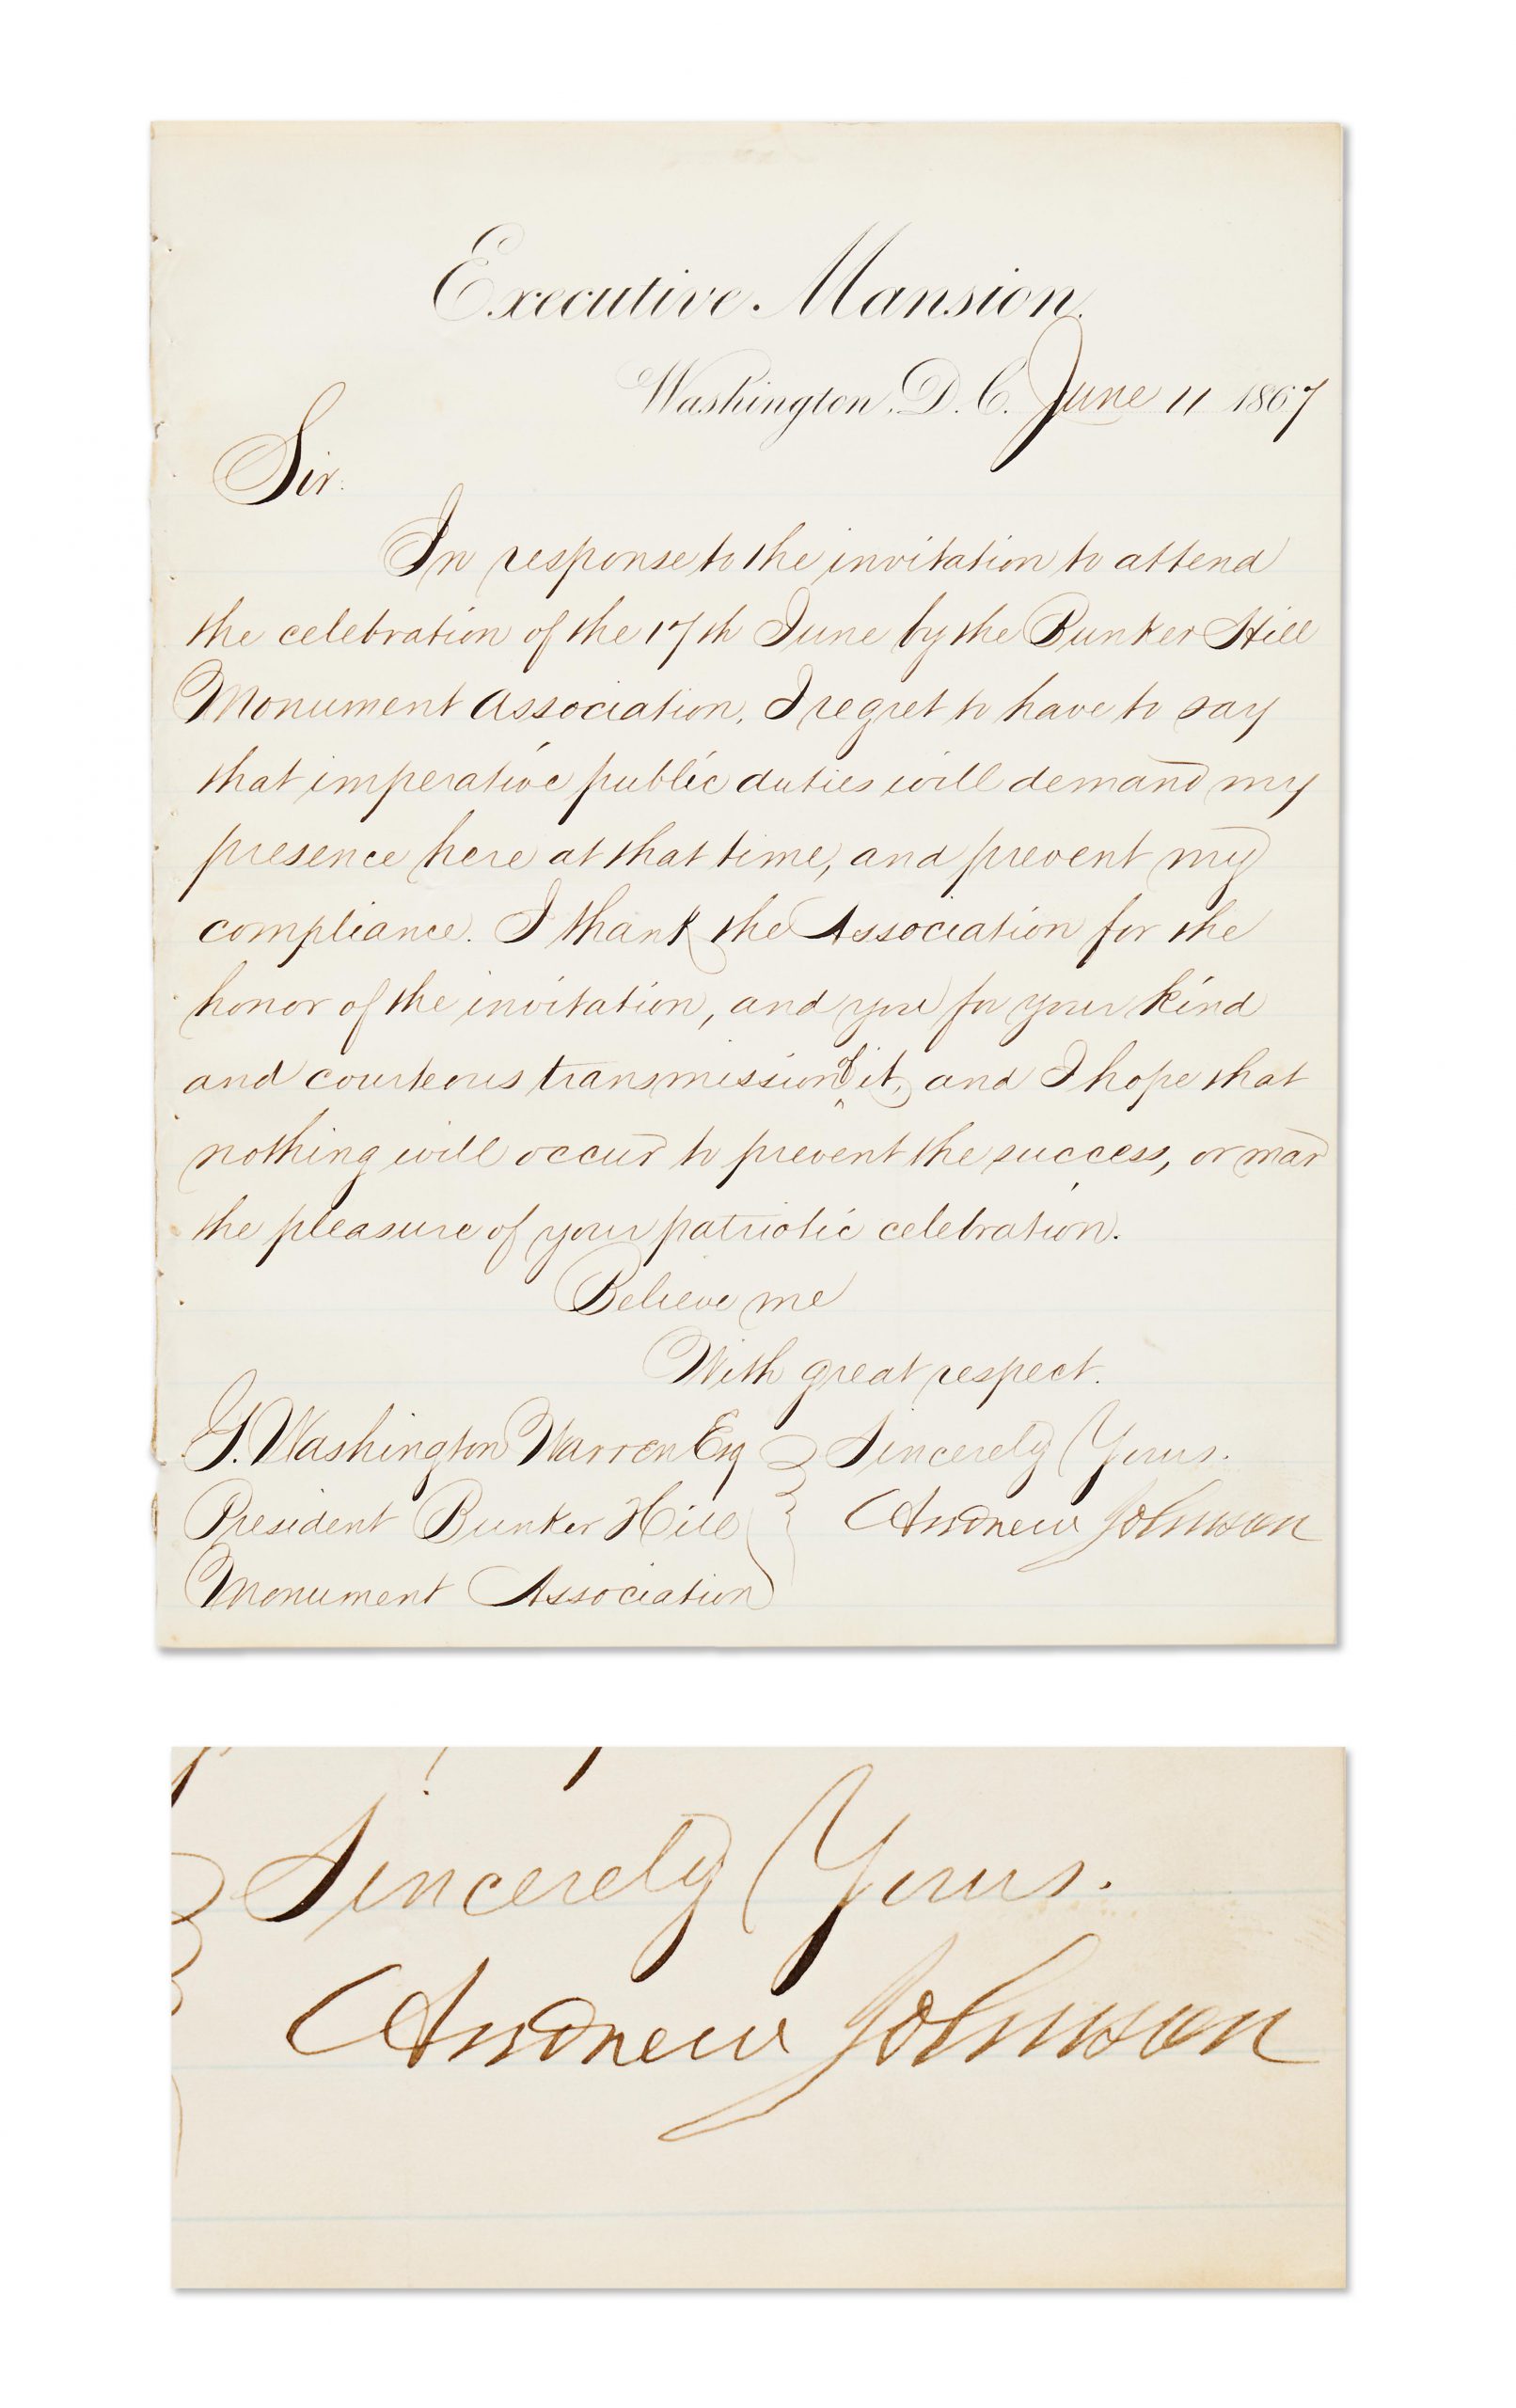 Executive Mansion.
Washington, D.C. June 11 1867
Sir.
In response to the invitation to attend
the celebration of the 17th June by the Bunker Hill
Monument Association, I regret to have to say
that imperative public duties will demand my
presence here at that time, and prevent my
compliance. I thank the Association for the
honor of the invitation, and you for your kind
and courteous transmission of it, and I hope that
nothing will occur to prevent the success, or mar
the pleasure of your patriotic celebration.
Believe me
With great respect.
Sincerely Yours.
Andrew Johnson
G. Washington Warren Esq
President Bunker Hill
Monument Association
Sincerely Yours.
Andrew Johnson